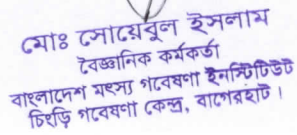 মোঃ সোয়েবুল ইসলাম
বৈজ্ঞানিক কর্মকর্তা
বাংলাদেশ মৎস্য গবেষণা ইনস্টিটিউট
চিংড়ি গবেষণা কেন্দ্র, বাগেরহাট ।